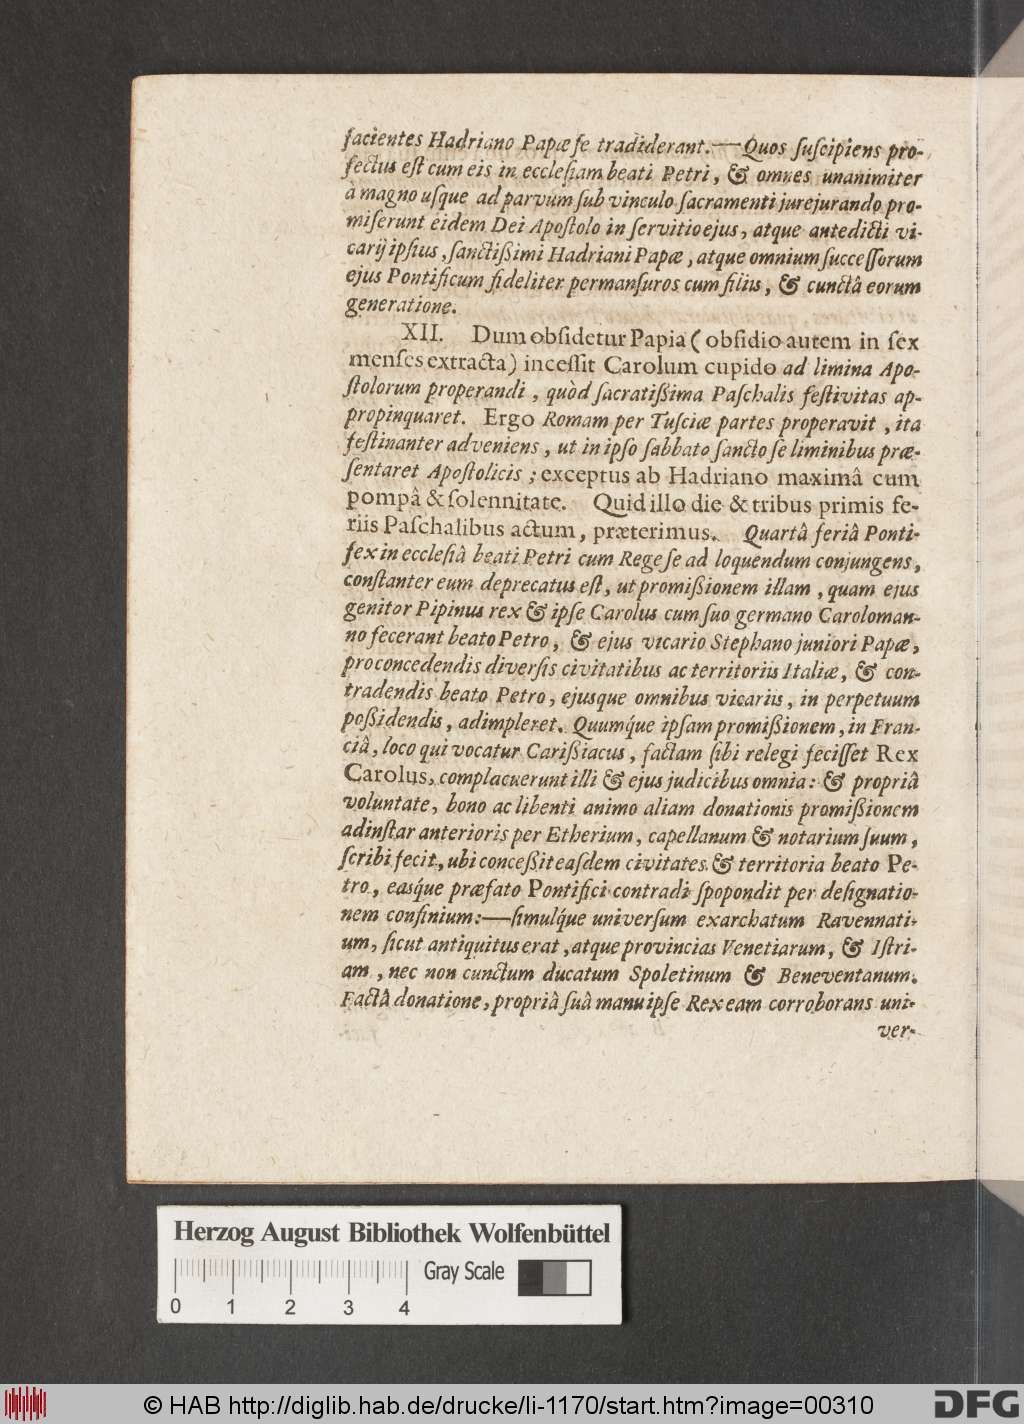 facientes Hadriano Papæ se tradiderant.—Quos ſuſcipiens pro-
fectus eſt cum eis in eccleſiam beati Petri, & omnes unanimiter
à magno uſque ad parvum ſub vinculo ſacramenti jurejurando pro-
miſerunt eidem Dei Apoſtolo in ſervitio ejus, atque antedicti vi-
carij ipſius, ſanctißimi Hadriani Papæ, atque omnium ſucceſſorum
ejus Pontificum fideliter permanſuros cum filiis, & cunctâ eorum
generatione.
XII. Dum obſidetur Papia (obſidio autem in ſex
menſes extracta) inceſſit Carolum cupido ad limina Apo-
ſtolorum properandi, quòd ſacratißima Paſchalis feſtivitas ap-
propinquaret. Ergo Romam per Tuſciæ partes properavit, ita
feſtinanter adveniens, ut in ipſo ſabbato ſancto ſe liminibus præ-
ſentaret Apoſtolicis; exceptus ab Hadriano maximâ cum
pompâ & ſolennitate. Quid illo die & tribus primis fe-
riis Paſchalibus actum, præterimus. Quartâ feriâ Ponti-
fex in eccleſiâ beati Petri cum Rege ſe ad loquendum conjungens,
conſtanter eum deprecatus eſt, ut promißionem illam, quam ejus
genitor Pipinus rex & ipſe Carolus cum ſuo germano Caroloman-
no fecerant beato Petro, & ejus vicario Stephano juniori Papæ,
pro concedendis diverſis civitatibus ac territoriis Italiæ, & con-
tradendis beato Petro, ejusque omnibus vicariis, in perpetuum
poßidendis, adimpleret. Quumq́ue ipſam promißionem, in Fran-
ciâ, loco qui vocatur Carißiacus, factam ſibi relegi feciſſet Rex
Carolus, complacuerunt illi & ejus judicibus omnia: & propriâ
voluntate, bono ac libenti animo aliam donationis promißionem
adinſtar anterioris per Etherium, capellanum & notarium ſuum,
ſcribi fecit, ubi conceßit eaſdem civitates & territoria beato Pe-
tro, easq́ue præfato Pontifici contradi ſpopondit per deſignatio-
nem confinium:—ſimulq́ue univerſum exarchatum Ravennati-
um, ſicut antiquitus erat, atque provincias Venetiarum, & Iſtri-
am, nec non cunctum ducatum Spoletinum & Beneventanum.
Factâ donatione, propriâ ſuâ manu ipſe Rex eam corroborans uni-
ver-
Herzog August Bibliothek Wolfenbüttel
Gray Scale
0 1 2 3 4
© HAB http://diglib.hab.de/drucke/li-1170/start.htm?image=00310
DFG